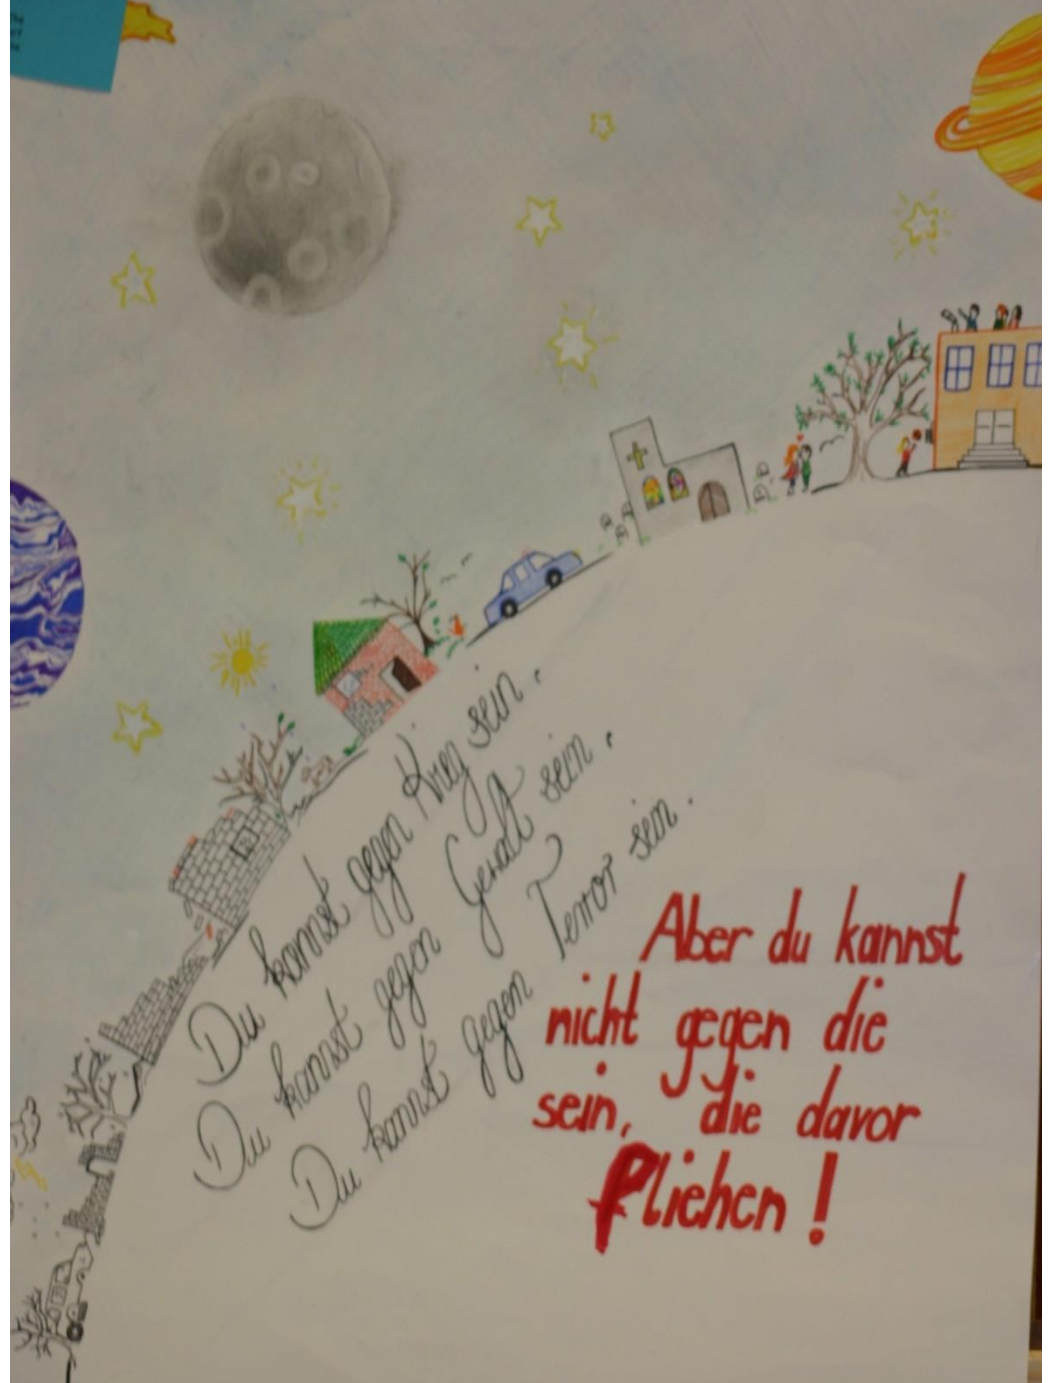 Du kannst gegen Krieg sein.
Du kannst gegen Gewalt sein.
Du kannst gegen Terror sein.
Aber du kannst
nicht gegen die
sein, die davor
fliehen!